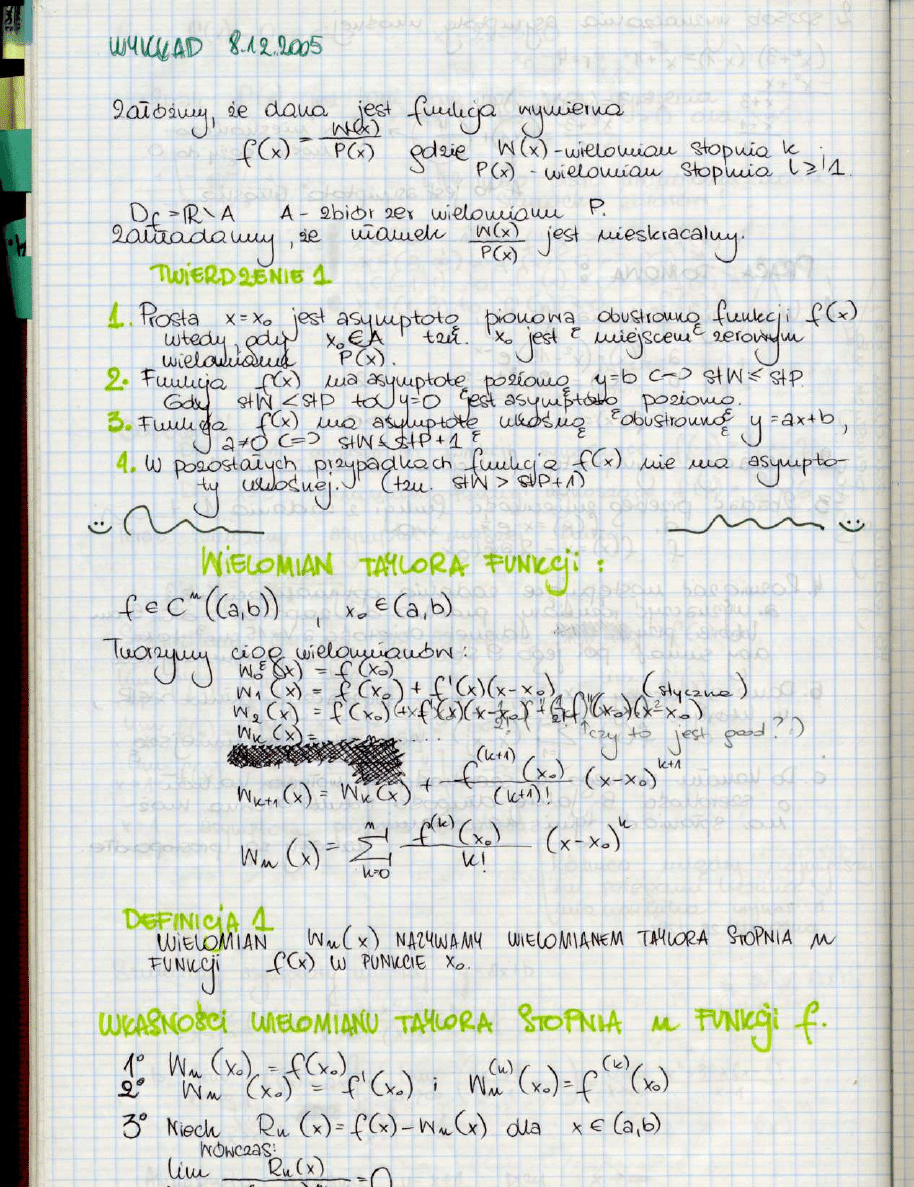 WYKŁAD 8.12.2005
Załóżmy, że dana jest funkcja wymierna
f(x) = W(x)/P(x) gdzie W(x) - wielomian stopnia k
P(x) - wielomian stopnia l ≥ 1.
Df = ℝ \ A A - zbiór zer wielomianu P.
Zakładamy, że ułamek W(x)/P(x) jest nieskracalny.
TWIERDZENIE 1
1. Prosta x = x₀ jest asymptotą pionową obustronną funkcji f(x)
wtedy, gdy x₀ ∈ A tzn. x₀ jest miejscem zerowym
wielomianu P(x).
2. Funkcja f(x) ma asymptotę poziomą y=b <=> stW ≤ stP.
Gdy stW < stP to y=0 jest asymptotą poziomą.
3. Funkcja f(x) ma asymptotę ukośną obustronną y = ax+b,
a≠0 <=> stW ≤ stP+1
4. W pozostałych przypadkach funkcja f(x) nie ma asympto-
ty ukośnej. (tzn. stW > stP+1)
WIELOMIAN TAYLORA FUNKCJI:
f ∈ Cⁿ((a,b)), x₀ ∈ (a,b)
Tworzymy ciąg wielomianów:
W₀(x) = f(x₀)
W₁(x) = f(x₀) + f'(x)(x-x₀) (styczna)
W₂(x) = f(x₀) + f'(x)(x-x₀) +
Wk(x) = ... czy to jest good?:)
Wk+1(x) = Wk(x) + f^(k+1)(x₀)/(k+1)! (x-x₀)^k+1
Wn(x) = Σ k=0 n f^(k)(x₀)/k! (x-x₀)^k
DEFINICJA 1
WIELOMIAN Wn(x) NAZYWAMY WIELOMIANEM TAYLORA STOPNIA n
FUNKCJI f(x) W PUNKCIE x₀.
WŁASNOŚCI WIELOMIANU TAYLORA STOPNIA n FUNKCJI f.
1° Wn(x₀) = f(x₀)
2° Wn(x₀) = f'(x₀) i Wn^(k)(x₀) = f^(k)(x₀)
3° Niech Rn(x) = f(x) - Wn(x) dla x ∈ (a,b)
WÓWCZAS:
lim Rn(x) = 0